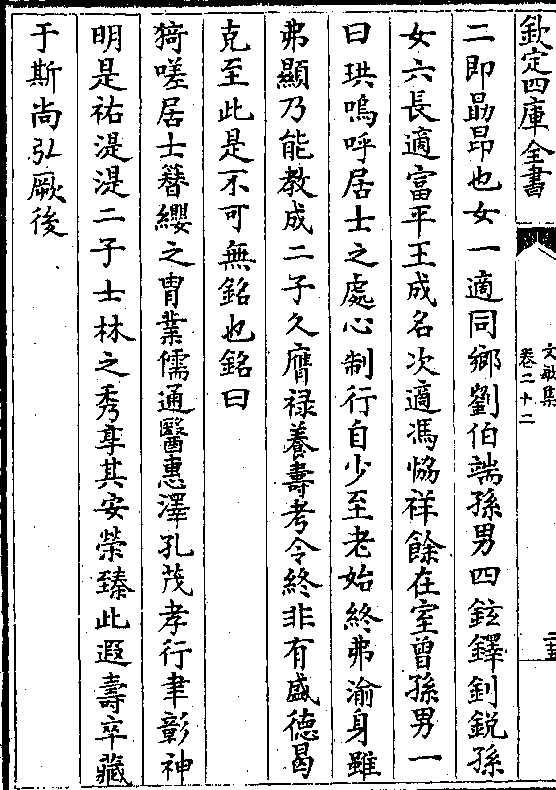 欽定四庫全書
文敏集
卷二十二
二即勗昂也女一適同鄉劉伯端孫男四鉉鐸釗銳孫
女六長適富平王成名次適馮恊祥餘在室曾孫男一
曰珙嗚呼居士之處心制行自少至老始終弗渝身雖
弗顯乃能教成二子久膺禄養壽考令終非有盛德曷
克至此是不可無銘也銘曰
猗嗟居士簪纓之胄業儒通醫惠澤孔茂孝行聿彰神
明是祐湜湜二子士林之秀享其安榮臻此遐壽卒藏
于斯尚弘厥後